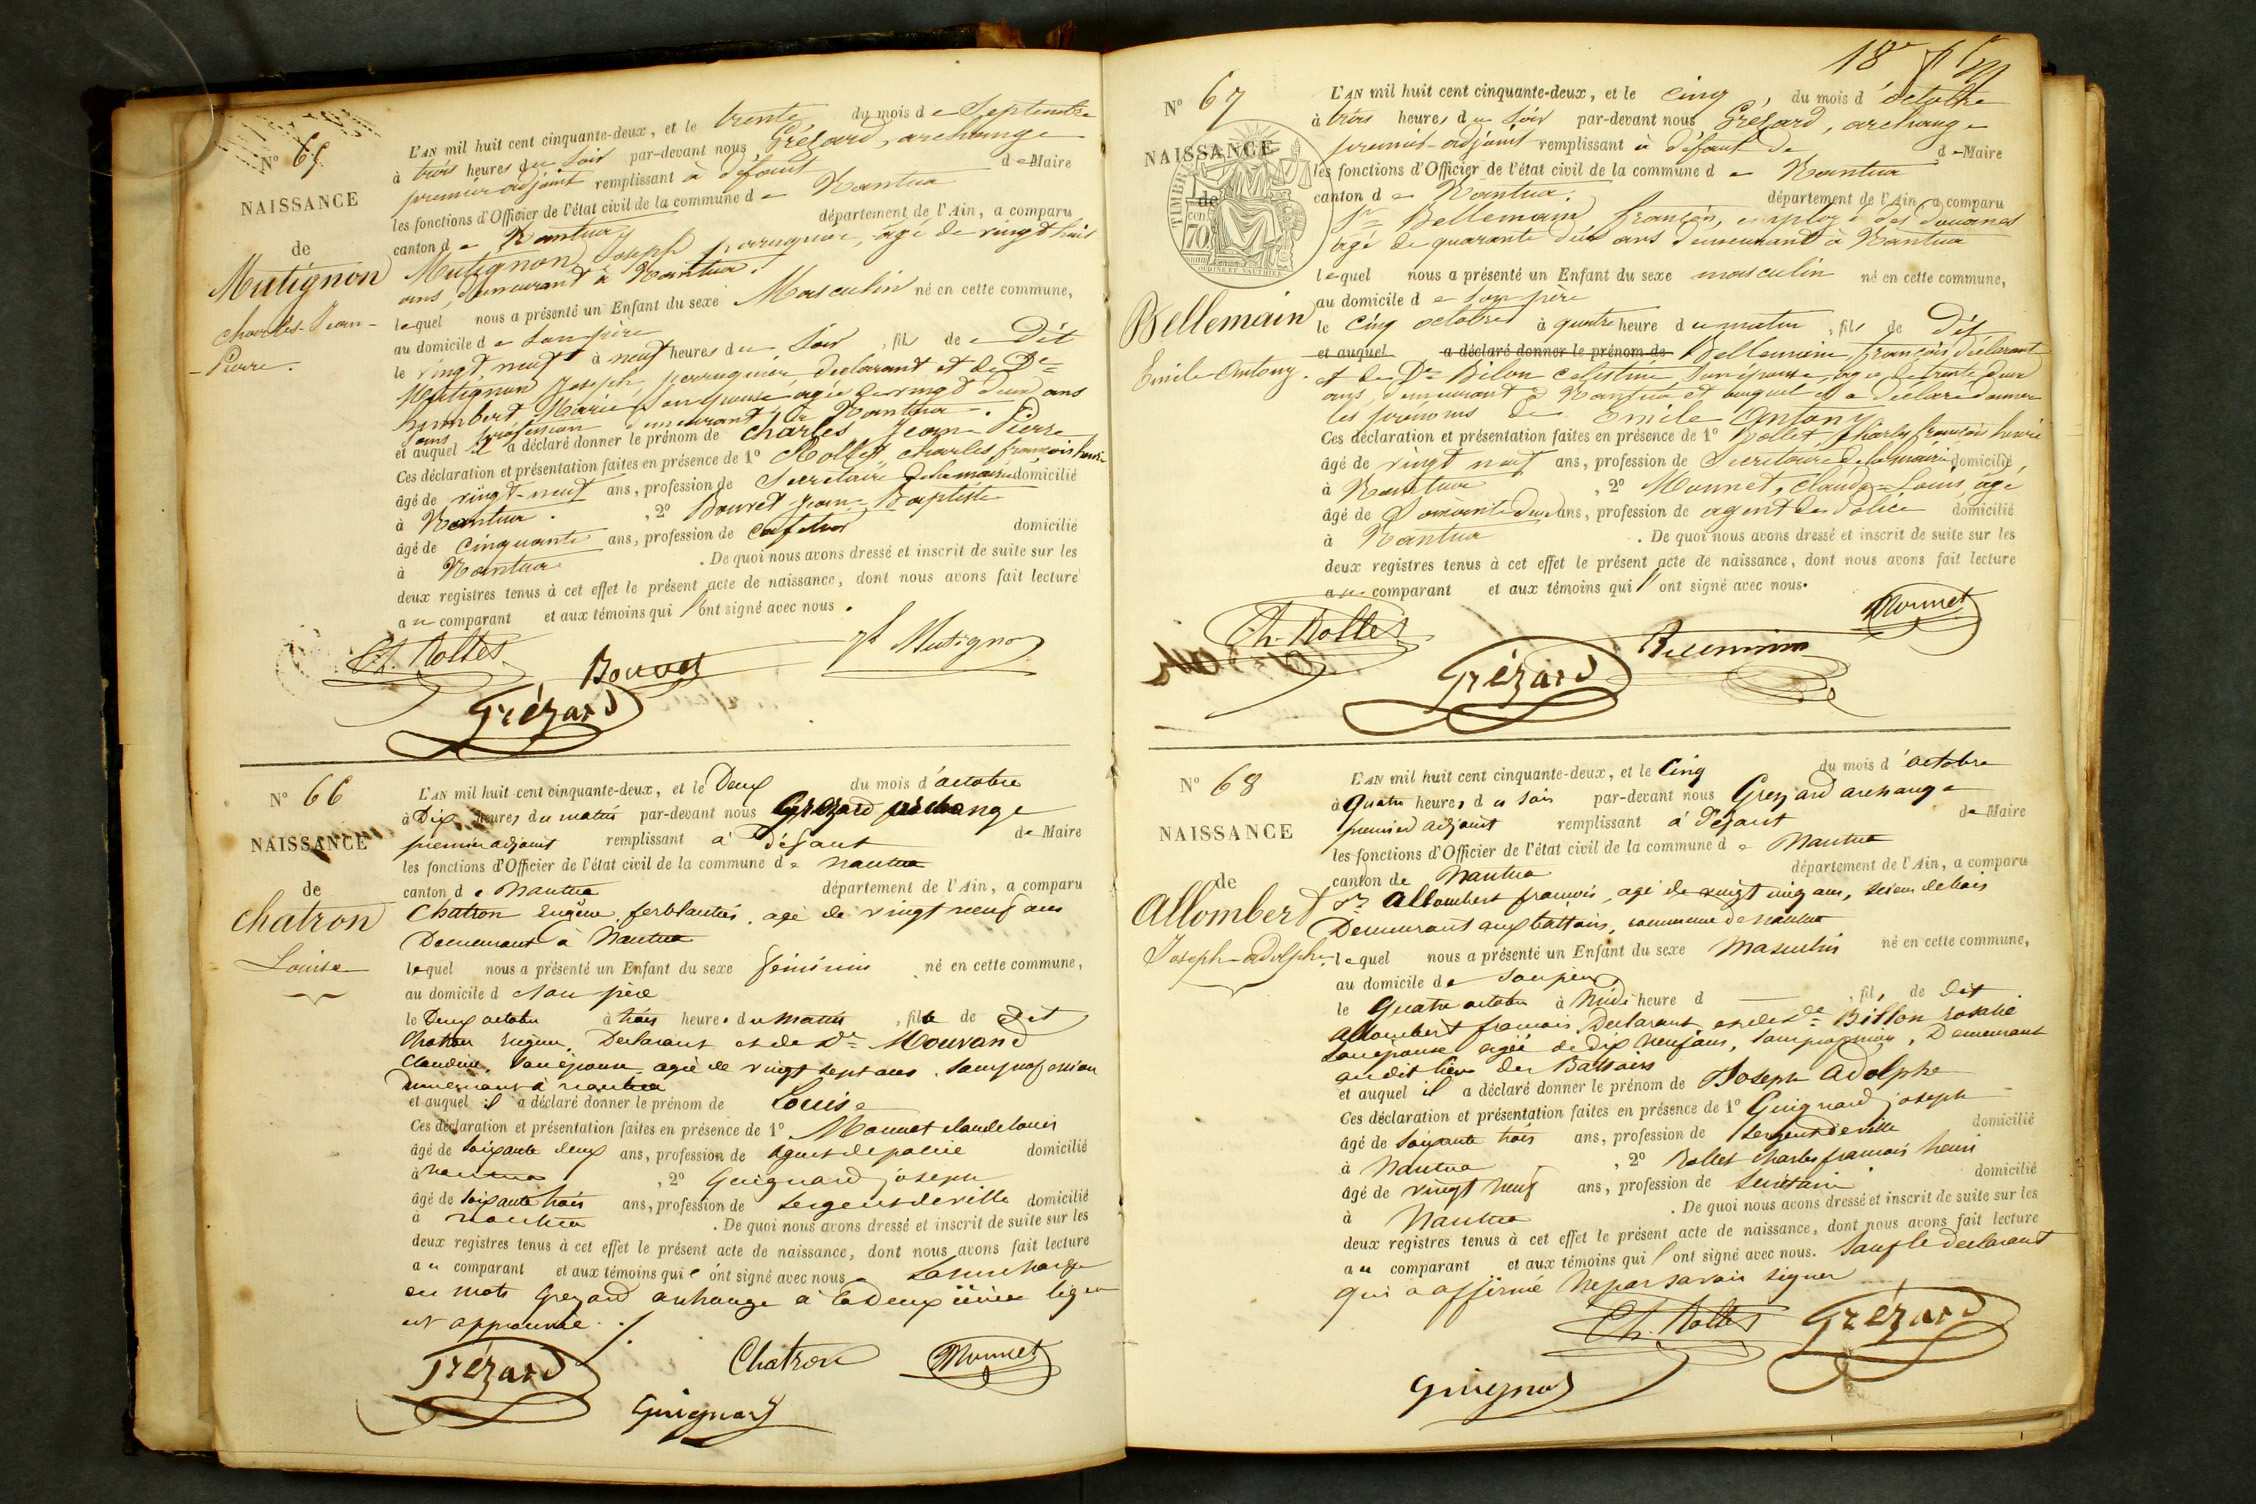 N° 65
NAISSANCE
de
Mutignon
Charles-Jean-
-Pierre.
L'AN mil huit cent cinquante-deux, et le trente du mois de Septembre
à trois heures du Soir par-devant nous Grézard, archange
premier adjoint remplissant à défaut de Maire
les fonctions d'Officier de l'état civil de la commune de Nantua
canton de Nantua département de l'Ain, a comparu
Mutignon Joseph perruquier, agé de vingt huit
ans, demeurant à Nantua.
lequel nous a présenté un Enfant du sexe Masculin né en cette commune,
au domicile de Son père
le vingt neuf à neuf heures du Soir, fils de Dit
Mutignon Joseph, perruquier déclarant et de De
humbert Marie Son épouse agée de vingt deux ans
Sans profession demeurant à Nantua.
et auquel il a déclaré donner le prénom de Charles Jean Pierre
Ces déclaration et présentation faites en présence de 1° Rollet Charles françois henri
âgé de vingt-neuf ans, profession de Secrétaire de la mairie domicilié
à Nantua. , 2° Bouvet Jean Baptiste
âgé de cinquante ans, profession de cafetier domicilié
à Nantua . De quoi nous avons dressé et inscrit de suite sur les
deux registres tenus à cet effet le présent acte de naissance, dont nous avons fait lecture
au comparant et aux témoins qui l'ont signé avec nous.
Ch. Rollet Bouvet Jh Mutignon
Grézard
N° 66
NAISSANCE
de
Chatron
Louise
L'AN mil huit cent cinquante-deux, et le Deux du mois d'octobre
à Dix heures du matin par-devant nous Grezard archange
premier adjoint remplissant à Défaut de Maire
les fonctions d'Officier de l'état civil de la commune de Nantua
canton de Nantua département de l'Ain, a comparu
Chatron Eugène, ferblantier, agé de vingt neuf ans
Demeurant à Nantua
lequel nous a présenté un Enfant du sexe féminin né en cette commune,
au domicile de Son père
le Deux octobre à trois heures du matin, fille de Dit
Chatron Eugène, Déclarant et de De Mouvand
Claudine, Son épouse agée de vingt sept ans, Sans profession
Demeurant à nantua
et auquel il a déclaré donner le prénom de Louise
Ces déclaration et présentation faites en présence de 1° Monnet claude louis
âgé de Soixante deux ans, profession de agent de police domicilié
à nantua , 2° Guignard joseph
âgé de Soixante trois ans, profession de sergent de ville domicilié
à nantua . De quoi nous avons dressé et inscrit de suite sur les
deux registres tenus à cet effet le présent acte de naissance, dont nous avons fait lecture
au comparant et aux témoins qui ont signé avec nous. La surcharge
en mots Grezard archange à la Deuxième ligne
est approuvée.
Grézard Chatron Monnet
Guignard
18e
N° 67
NAISSANCE
de
Bellemain
Emile Antony.
TIMBRE
70
L'AN mil huit cent cinquante-deux, et le cinq du mois d'octobre
à trois heures du Soir par-devant nous Grézard, archange
premier-adjoint remplissant à défaut de de Maire
les fonctions d'Officier de l'état civil de la commune de Nantua
canton de Nantua. département de l'Ain, a comparu
Sr Bellemain françois, employé des douanes
agé de quarante deux ans demeurant à Nantua
lequel nous a présenté un Enfant du sexe masculin né en cette commune,
au domicile de Son père
le cinq octobre à quatre heure du matin, fils de Dit
et auquel a déclaré donner le prénom de Bellemain françois déclarant
et de De Bilon Celestine Son épouse, agée de trente deux
ans, demeurant à Nantua et auquel il a déclaré donner
les prénoms de Emile Antony
Ces déclaration et présentation faites en présence de 1° Rollet, Charles françois henri
âgé de vingt neuf ans, profession de Secrétaire de la mairie domicilié
à Nantua , 2° Monnet, Claude-Louis, agé
âgé de Soixante deux ans, profession de agent de Police domicilié
à Nantua . De quoi nous avons dressé et inscrit de suite sur les
deux registres tenus à cet effet le présent acte de naissance, dont nous avons fait lecture
au comparant et aux témoins qui l'ont signé avec nous.
Ch. Rollet Grézard Bellemain Monnet
N° 68
NAISSANCE
de
Allombert
Joseph-Adolphe.
L'AN mil huit cent cinquante-deux, et le Cinq du mois d'octobre
à Quatre heures du soir par-devant nous Grezard archange
premier adjoint remplissant à Défaut de Maire
les fonctions d'Officier de l'état civil de la commune de Nantua
canton de Nantua département de l'Ain, a comparu
Sr Allombert françois, agé de vingt cinq ans, scieur de bois
Demeurant aux battoirs, commune de nantua
lequel nous a présenté un Enfant du sexe Masculin né en cette commune,
au domicile de Son père
le Quatre octobre à Midi heure d , fils de Dit
Allombert françois Déclarant et de De Billon Rosalie
Son épouse agée de Dix neuf ans, Sans profession, Demeurant
au dit lieu des Battoirs
et auquel il a déclaré donner le prénom de Joseph Adolphe
Ces déclaration et présentation faites en présence de 1° Guignard joseph
âgé de Soixante trois ans, profession de sergent de ville domicilié
à Nantua , 2° Rollet charles françois henri
âgé de vingt neuf ans, profession de Secrétaire domicilié
à Nantua . De quoi nous avons dressé et inscrit de suite sur les
deux registres tenus à cet effet le présent acte de naissance, dont nous avons fait lecture
au comparant et aux témoins qui l'ont signé avec nous. Sauf le déclarant
qui a affirmé ne pas savoir signer
Ch. Rollet Grézard
Guignard